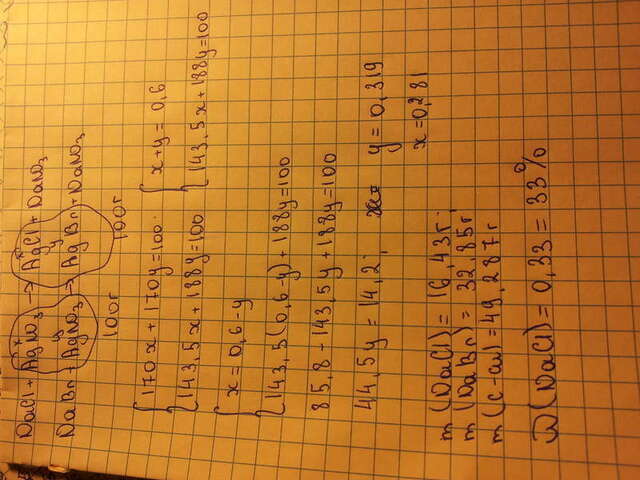 NaCl + AgNO₃ → AgCl + NaNO₃
x x
NaBr + AgNO₃ → AgBr + NaNO₃
y y
100г 100г
{ 170x + 170y = 100 { x + y = 0,6
{ 143.5x + 188y = 100 { 143.5x + 188y = 100
{ x = 0,6 - y
{ 143,5(0,6-y) + 188y = 100
85,8 - 143,5y + 188y = 100
44,5y = 14,2; y = 0,319
x = 0,281
m(NaCl) = 16,43г.
m(NaBr) = 32,85г
m(с-си) = 49,287г
ω(NaCl) = 0,33 = 33%